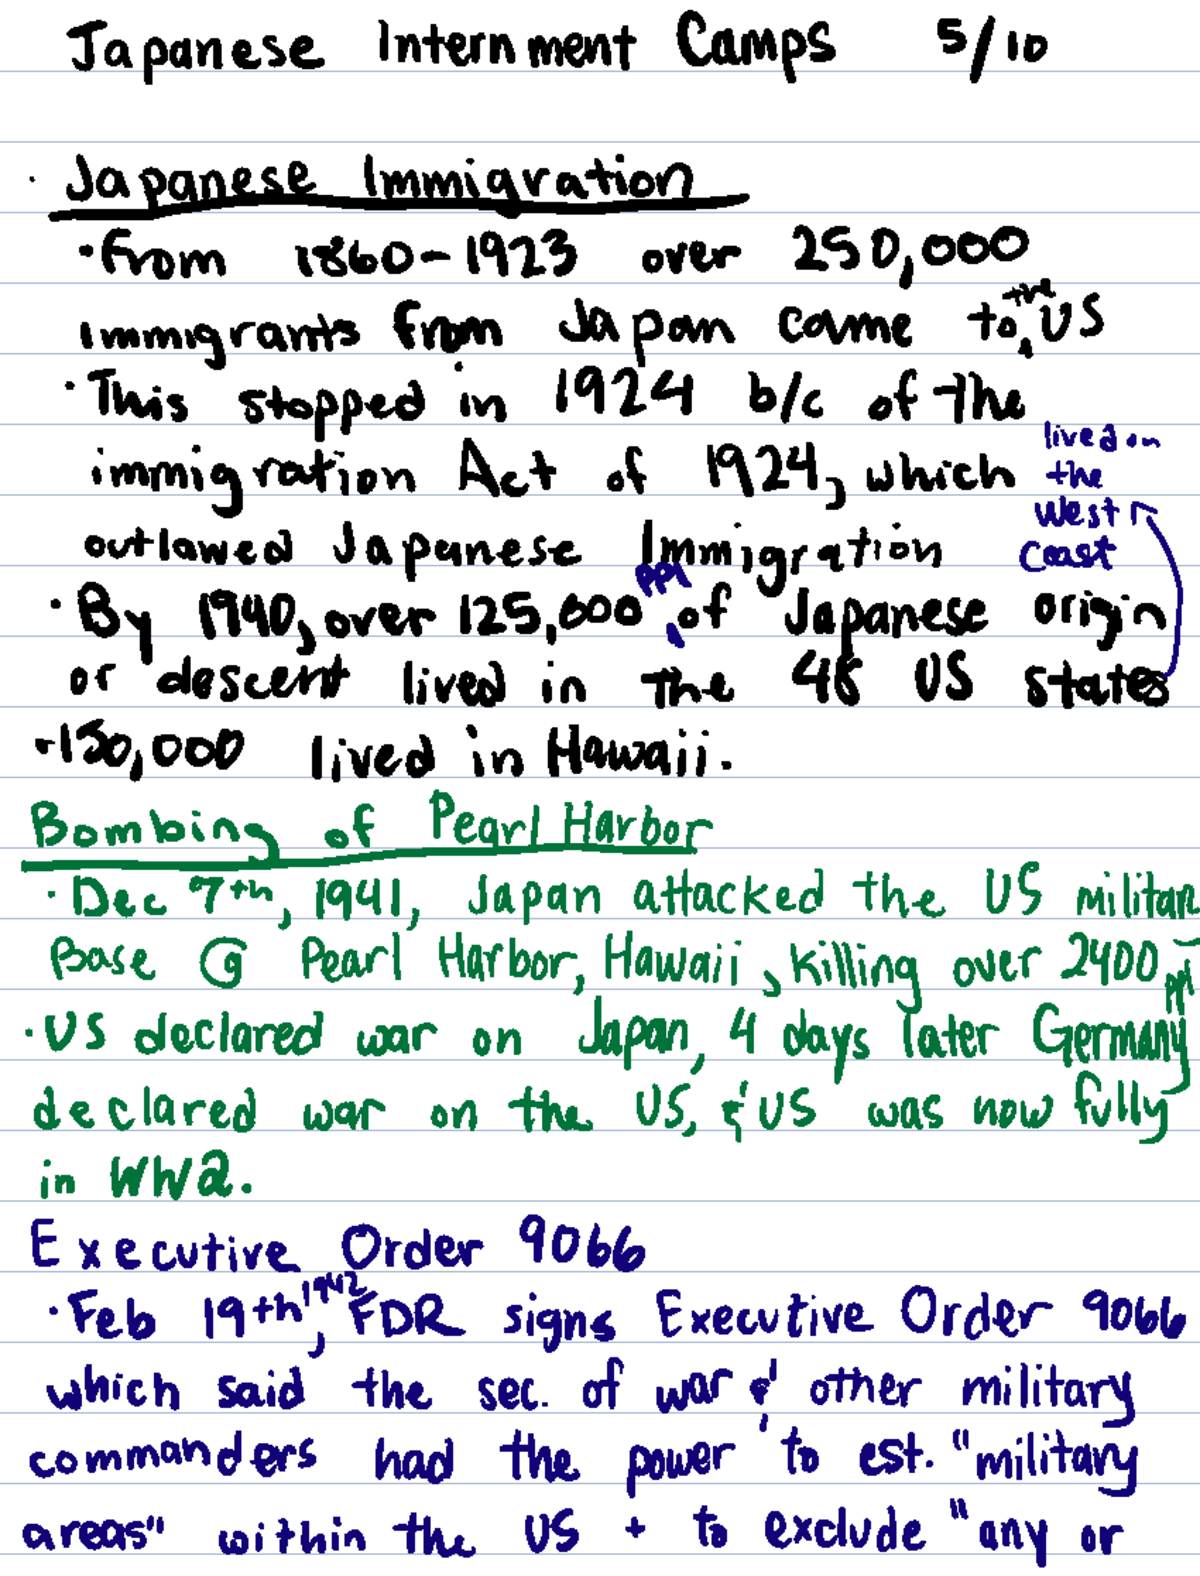 Japanese Internment Camps 5/10
· Japanese Immigration
· from 1860-1923 over 250,000
immigrants from Japan came to the US
· This stopped in 1924 b/c of the
immigration Act of 1924, which
outlawed Japanese Immigration
lived on
the
West
Coast
· By 1940, over 125,000 ppl of Japanese origin
or descent lived in the 48 US states
-150,000 lived in Hawaii.
Bombing of Pearl Harbor
· Dec 7th, 1941, Japan attacked the US military
Base @ Pearl Harbor, Hawaii, killing over 2400 ppl
· US declared war on Japan, 4 days later Germany
declared war on the US, & US was now fully
in WW2.
Executive Order 9066
· Feb 19th, 1942 FDR signs Executive Order 9066
which said the sec. of war & other military
commanders had the power to est. "military
areas" within the US + to exclude "any or